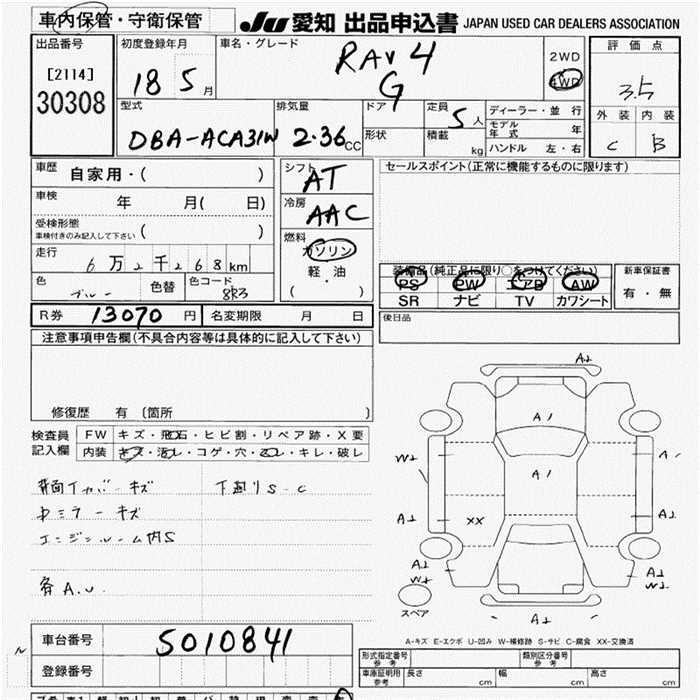 車内保管・守衛保管
JU 愛知 出品申込書 JAPAN USED CAR DEALERS ASSOCIATION
出品番号
[2114]
30308
初度登録年月
18 5月
車名・グレード
RAV4
G
2WD
4WD
評価点
3.5
外装 内装
C B
型式
DBA-ACA31W
排気量
2.36CC
ドア
形状
定員 5人
積載 kg
ディーラー・並行
モデル年式 年
ハンドル 左・右
車歴
自家用・( )
車検
年 月( 日)
受検形態
車検付きのみ記入して下さい ( )
走行
6万2千268km
色
ブルー
色替
色コード
8R3
シフト
AT
冷房
AAC
燃料
ガソリン
軽・油
( ・ )
セールスポイント(正常に機能するものに限ります)
装備品(純正品に限り○をつけてください)
PS PW エアB AW
SR ナビ TV カワシート
新車保証書
有・無
R券 13070円 名変期限 月 日
後日品
注意事項申告欄(不具合内容等は具体的に記入して下さい)
修復歴 有 〔箇所 〕
検査員
記入欄
FW キズ・飛石・ヒビ割・リペア跡・X要
内装 キズ・汚レ・コゲ・穴・ズレ・キレ・破レ
背面タイヤカバーキズ 下廻りS-C
ミラーキズ
エンジンルーム内S
各A.U.
A2
A1
A1
W2
A1
A2
XX
A2
A2
W2
A2
W2
A2
スペア
A-キズ E-エクボ U-凹み W-補修跡 S-サビ C-腐食 XX-交換済
車台番号
5010841
登録番号
形式指定番号
参考
類別区分番号
参考
車庫証明用
参考
長さ cm 幅 cm 高さ cm